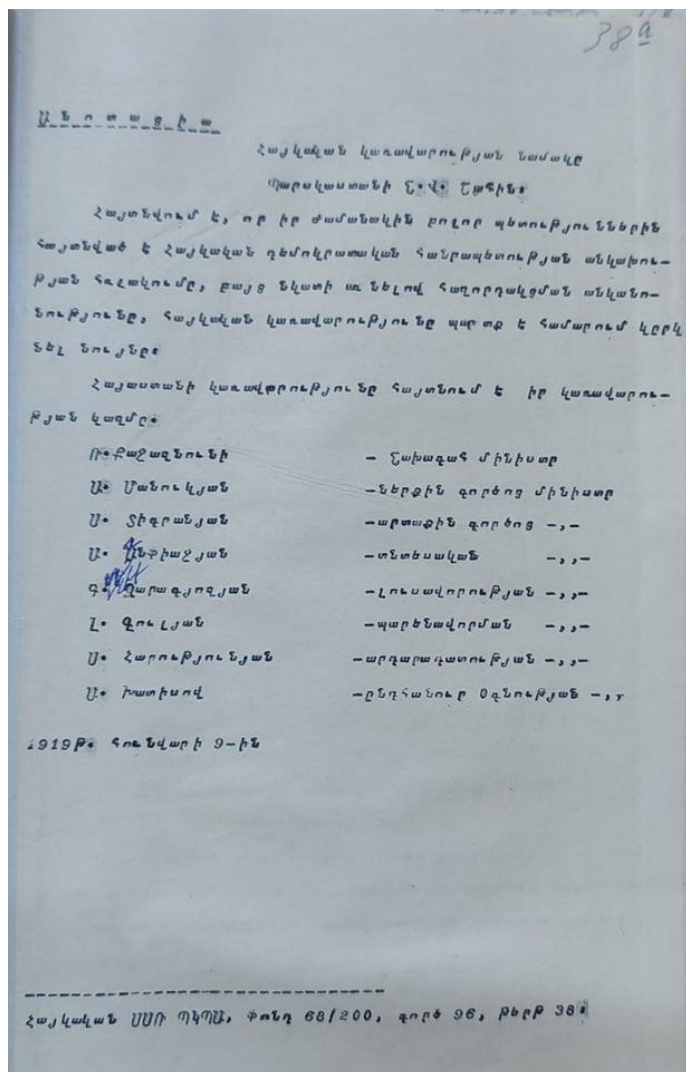 38ա
Անոտացիա
Հայկական կառավարության նամակը
Պարսկաստանի Ն.Վ. Շահին։
Հայտնվում է, որ իր ժամանակին բոլոր պետություններին
հայտնված է Հայկական դեմոկրատական հանրապետության անկախու-
թյան հռչակումը, բայց նկատի առնելով հաղորդակցման անկանո-
նությունը, հայկական կառավարությունը պարտք է համարում կըրկ
նել նույնը։
Հայաստանի կառավըրությունը հայտնում է իր կառավարու-
թյան կազմը.
Ռ. Քաջազնունի – Նախագահ մինիստր
Ա. Մանուկյան –ներքին գործոց մինիստր
Ս. Տիգրանյան –արտաքին գործոց –,–
Ա. Ջնֆիաջյան –տնտեսական –,,–
Գ. Ղարագյոզյան –լուսավորության –,,–
Լ. Գուլյան –պարենավորման –,,–
Ս. Հարությունյան –արդարադատության –,,–
Ա. Խատիսով –ընդհանուր Օգնության –,,
1919թ. հունվարի 9-ին
Հայկական ՍՍՌ ՊԿՊԱ, ֆոնդ 68/200, գործ 96, թերթ 38.